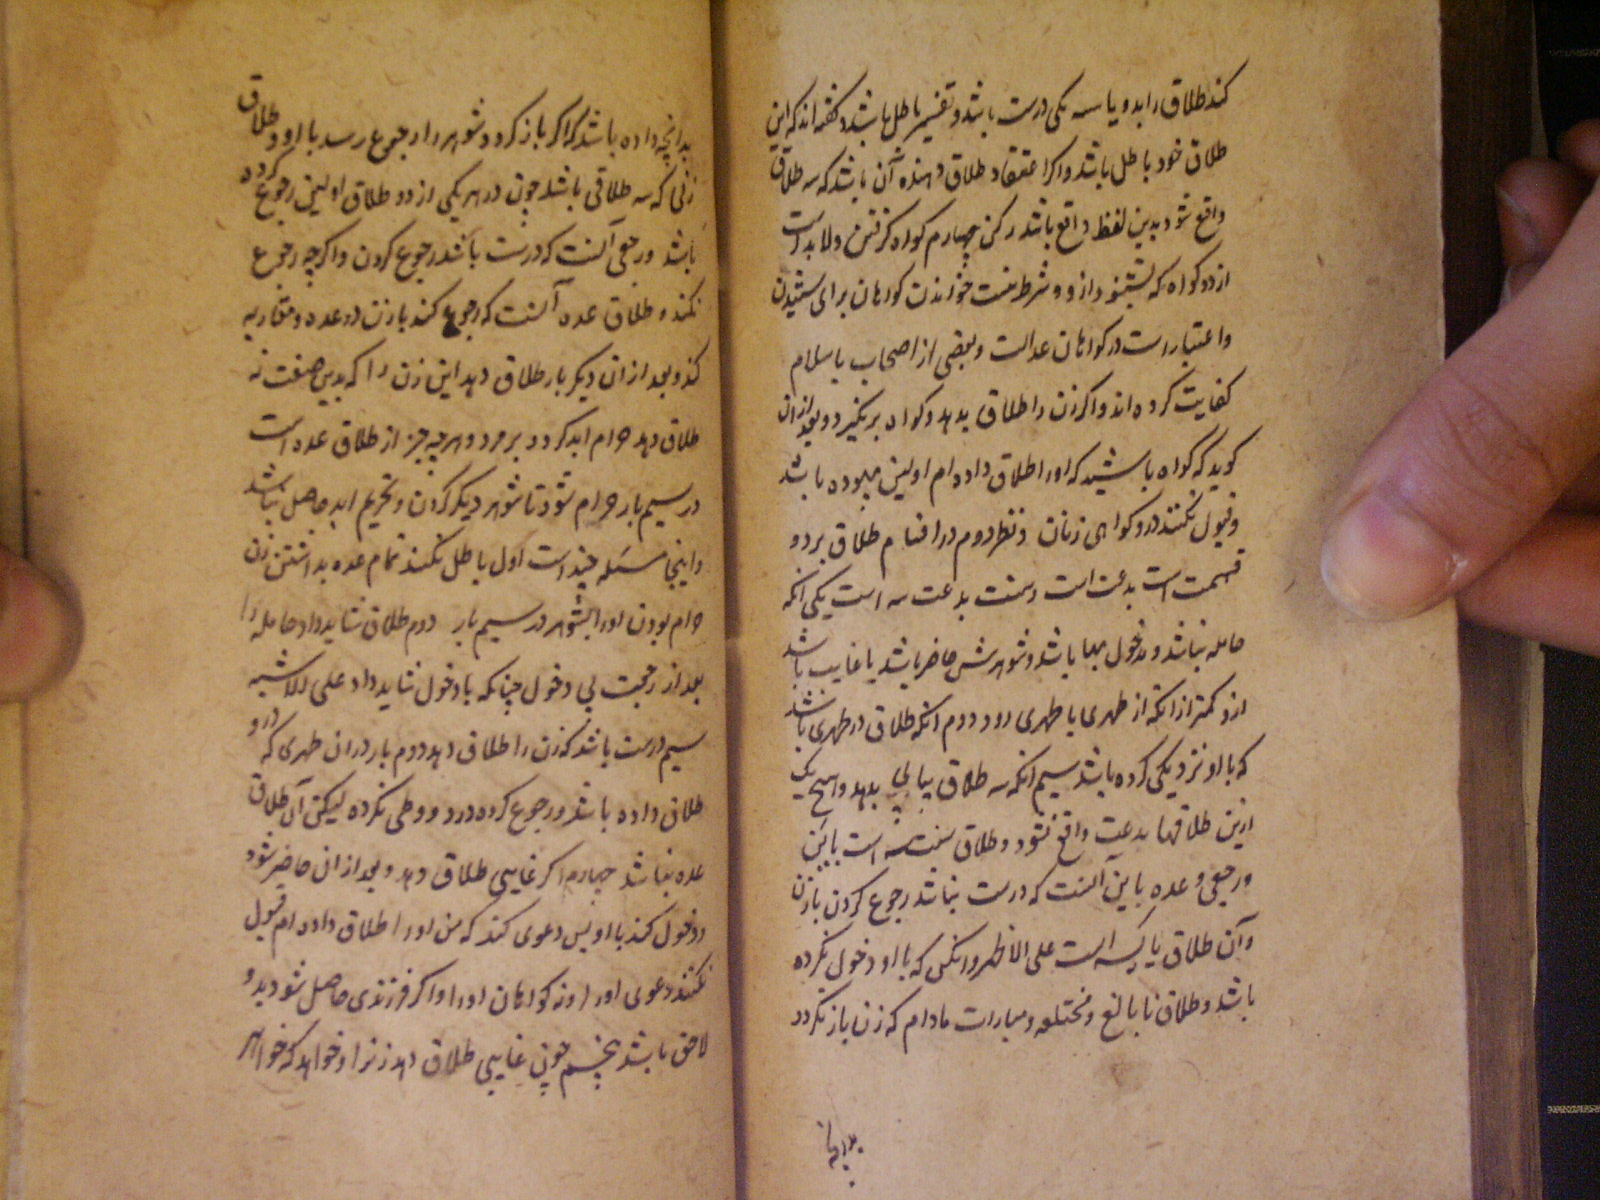 کند طلاق را بدو یا سه یکی درست باشد و تفسیر باطل باشد و گفته‌اند که این
طلاق خود باطل باشد و اکر اعتقاد طلاق دهنده آن باشد که سه طلاق
واقع شود بدین لفظ واقع باشد رکن چهارم کواه کرفتن و لا بد است
از دو کواه که بشنوند از و و شرط نیست خواندن کواهان برای شنیدن
و اعتبار است در کواهان عدالت و بعضی از اصحاب باسلام
کفایت کرده‌اند و اکر زن را طلاق بدهد و کواه برنکیرد و بعد از ان
کوید که کواه باشید که او را طلاق داده‌ام اولین بیهوده باشد
و قبول نکنند درو کواهی زنان و نظر دوم در اقسام طلاق بر دو
قسمت است بدعت است و سنت بدعت سه است یکی آنکه
حامله نباشد و مدخول بها باشد و شوهرش حاضر باشد یا غایب باشد
ازو کمتر از آنکه از طهری با طهری رود دوم آنکه طلاق در طهری باشد
که با او نزدیکی کرده باشد سیم آنکه سه طلاق پیاپی بدهد و هیچ یک
ازین طلاقها بدعت واقع نشود و طلاق سنت سه است باین
و رجعی و عده باین آنست که درست نباشد رجوع کردن با زن
و آن طلاق یائسه است علی الاظهر و آنکس که با او دخول نکرده
باشد و طلاق نابالغ و مختلعه و مبارات مادام که زن باز نکردد
بدانچه
بدانچه داده باشد که اکر باز کردد شوهر را رجوع رسد با او و طلاق
زنی که سه طلاقی باشد چون در هر یکی از دو طلاق اولین رجوع کرده
باشد و رجعی آنست که درست باشد رجوع کردن و اکرچه رجوع
نکند و طلاق عده آنست که رجوع کند با زن در عده و مقاربه
کند و بعد از ان دیکر بار طلاق دهد این زن را که بدین صفت نه
طلاق دهد حرام ابد کردد بر مرد و هرچه جز از طلاق عده است
در سیم بار حرام شود تا شوهر دیکر کردن و تحریم ابد حاصل نباشد
و اینجا مسئله چند است اول باطل نکند تمام عده بداشتن زن
حرام بودن او را بشوهر در سیم بار دوم طلاق شاید داد حامله را
بعد از رجعت بی دخول چنانکه با دخول شاید داد علی الاشبه
سیم درست باشد که زن را طلاق دهد دوم بار در ان طهری که درو
طلاق داده باشد و رجوع کرده درو و وطی نکرده لیکن آن طلاق
عده نباشد چهارم اکر غایبی طلاق دهد و بعد از ان حاضر شود
و دخول کند با او پس دعوی کند که من او را طلاق داده‌ام قبول
نکنند دعوی او را و نه کواهان او را و اکر فرزندی حاصل شود بدو
لاحق باشد پنجم چون غایبی طلاق دهد زنرا و خواهد که خواهر